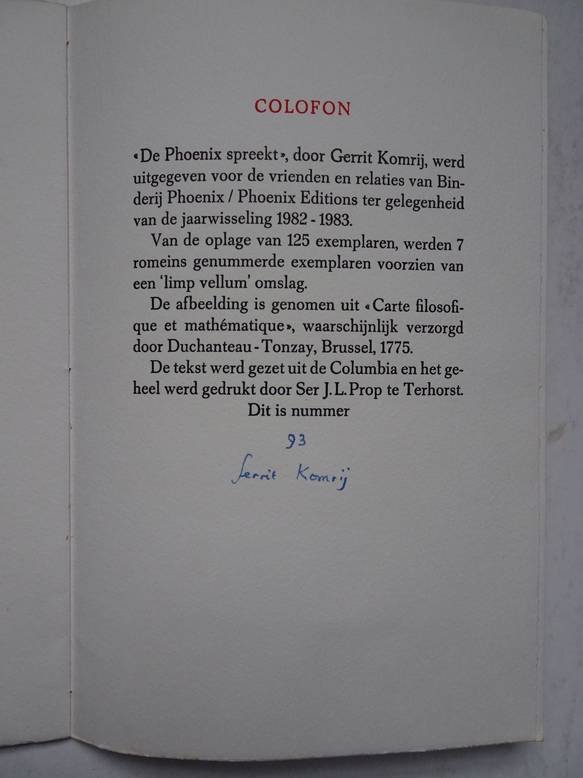 COLOFON
«De Phoenix spreekt», door Gerrit Komrij, werd
uitgegeven voor de vrienden en relaties van Bin-
derij Phoenix / Phoenix Editions ter gelegenheid
van de jaarwisseling 1982 - 1983.
Van de oplage van 125 exemplaren, werden 7
romeins genummerde exemplaren voorzien van
een 'limp vellum' omslag.
De afbeelding is genomen uit «Carte filosofi-
que et mathématique», waarschijnlijk verzorgd
door Duchanteau - Tonzay, Brussel, 1775.
De tekst werd gezet uit de Columbia en het ge-
heel werd gedrukt door Ser J. L. Prop te Terhorst.
Dit is nummer
93
Gerrit Komrij